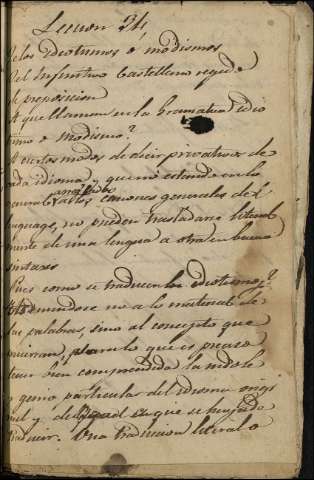 Leccion 34
De los Idiotismos ó modismos
del Infinitivo Castellano regido
de preposicion
A que llaman en la Gramatica idio
tismo o Modismo?
A ciertos modos de decir privativos de
cada idioma, y que no estando en lo
general a los canones generales del
lenguage, no pueden trasladarse literal
mente de una lengua a otra en buena
sintaxis
Pues como se traducen los Idiotismos?
Atendiendose no a lo material de
las palabras, sino al concepto que
encierran, para lo que es preciso
tener bien comprendida la indole
y genio particular del idioma origi
nal y del en que se haya de
traducir. Una traducion literal o